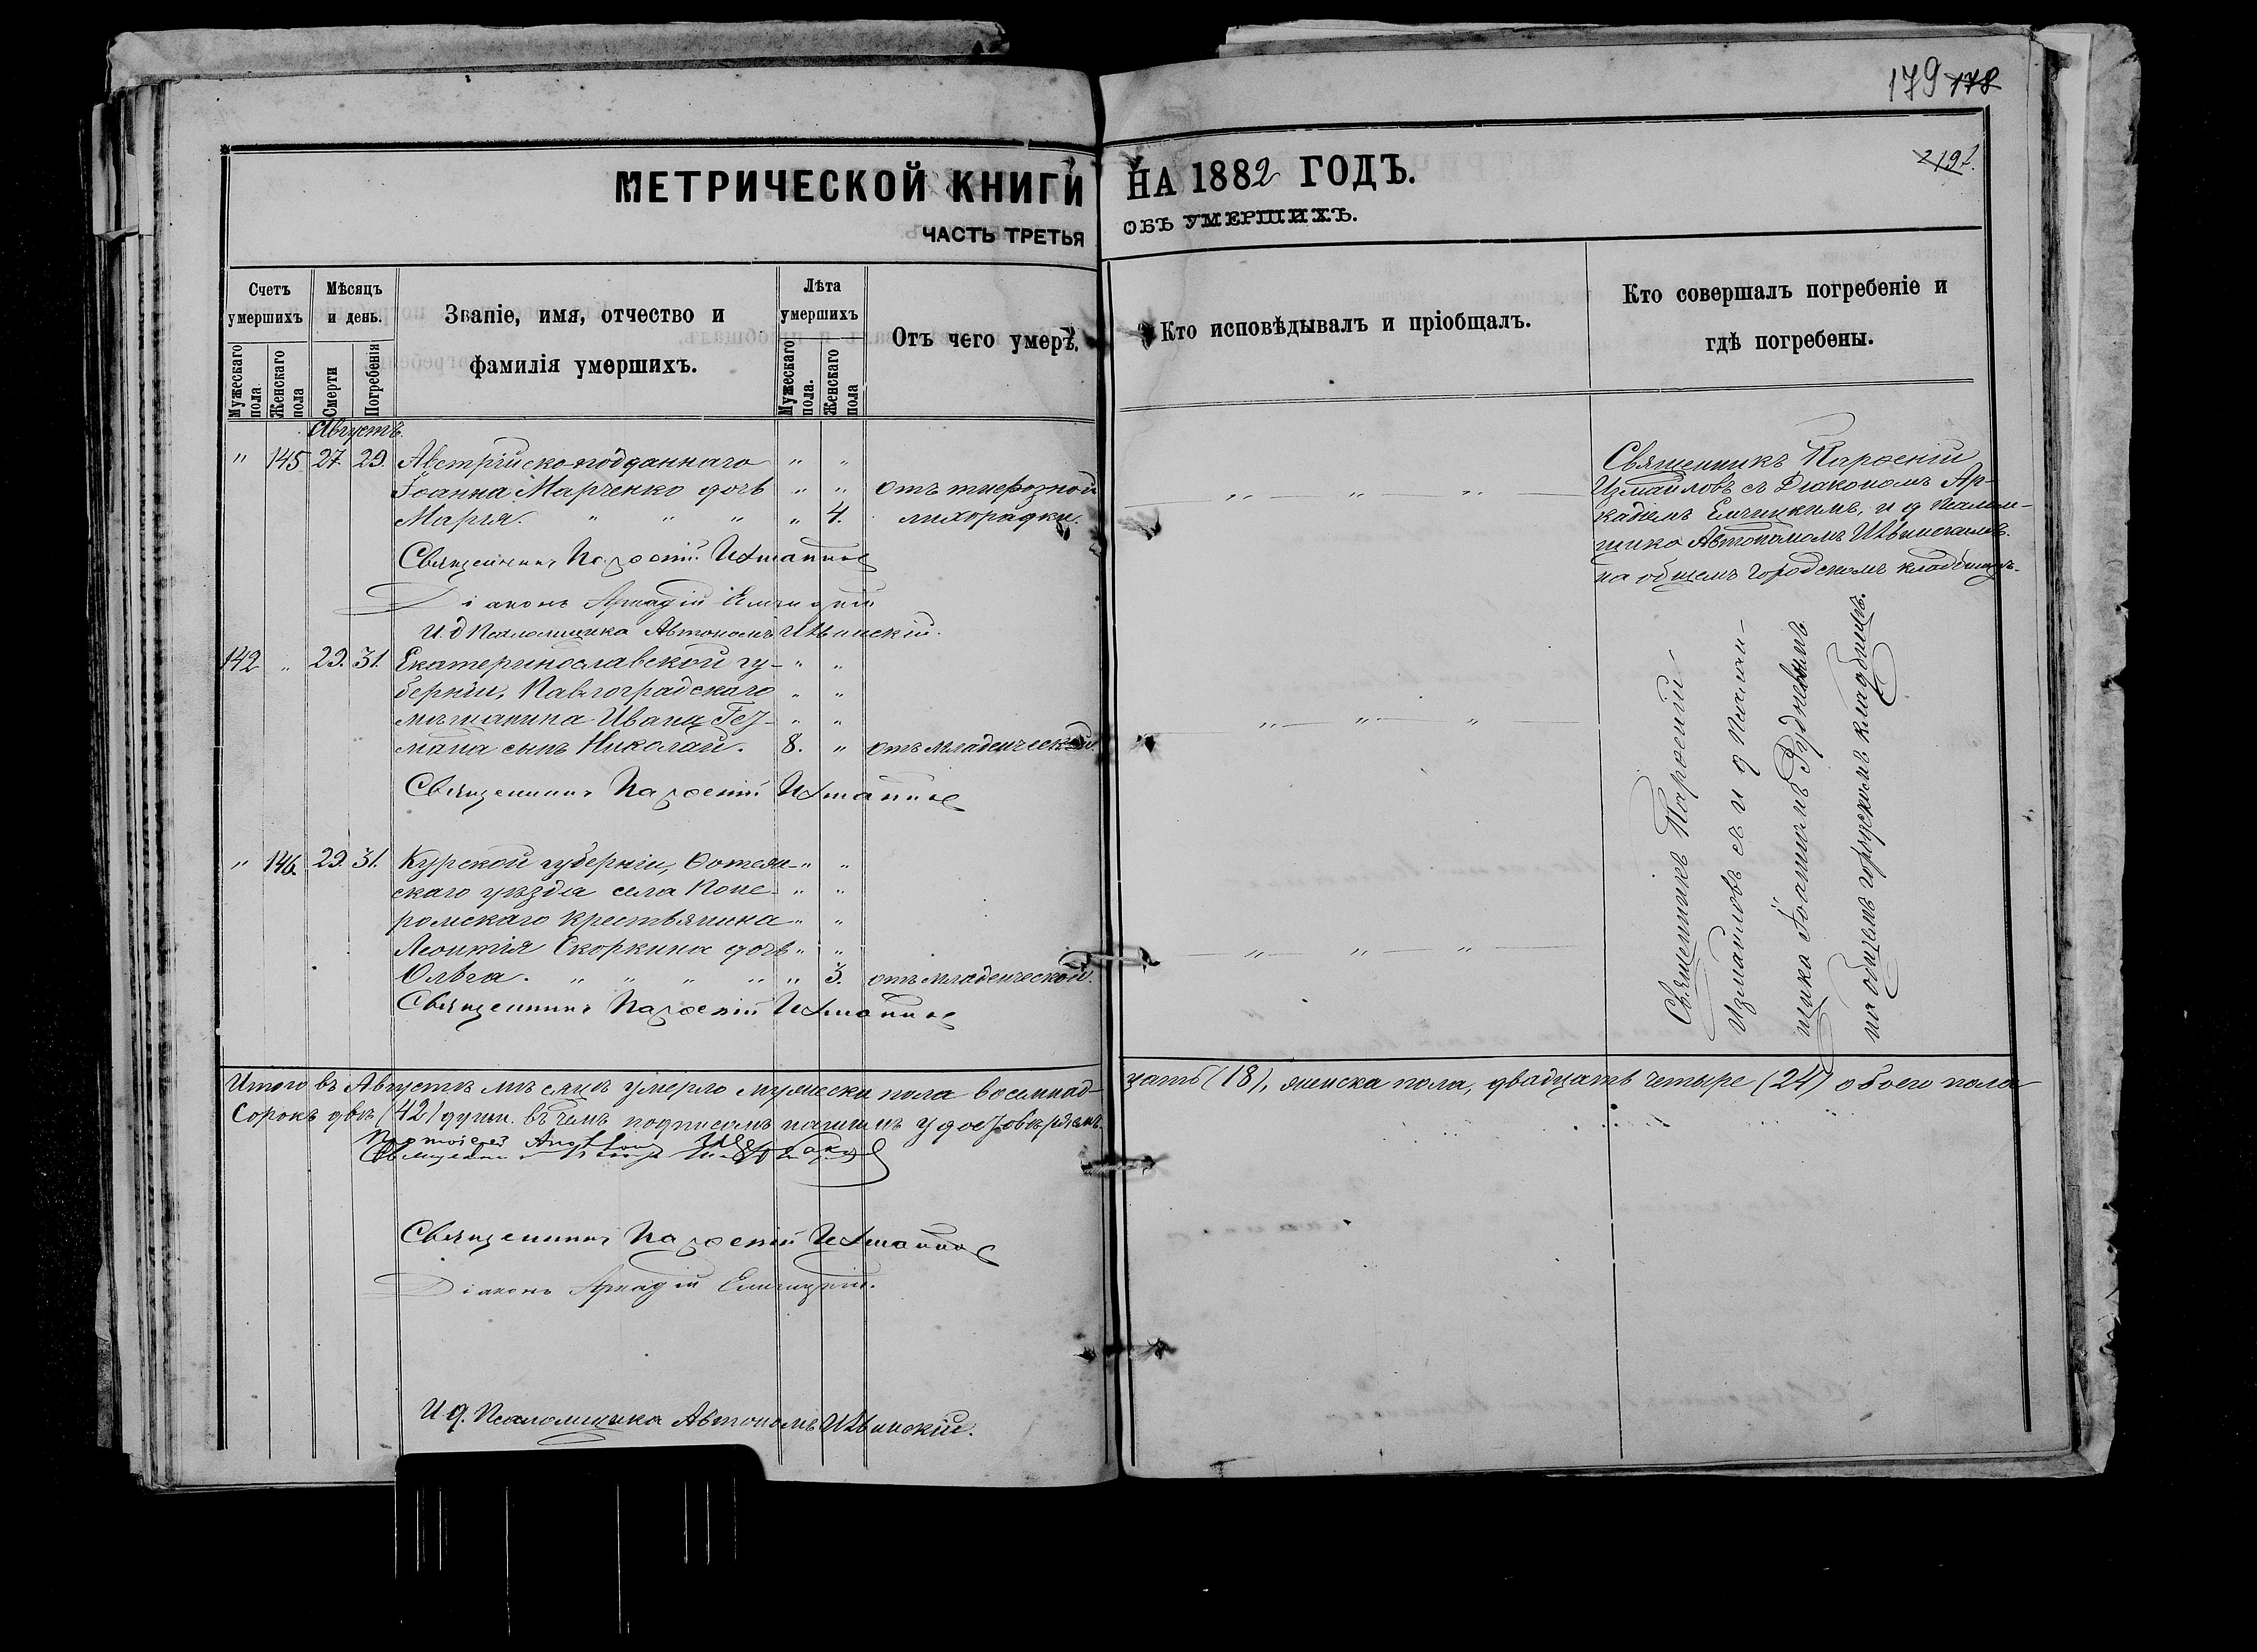 179 178
219
МЕТРИЧЕСКОЙ КНИГИ НА 1882 ГОДЪ.
ЧАСТЬ ТРЕТЬЯ ОБЪ УМЕРШИХЪ.
Счетъ умершихъ
Мужескаго пола
Женскаго пола
Мѣсяцъ и день.
Смерти
Погребенія
Званіе, имя, отчество и
фамилія умершихъ.
Лѣта умершихъ
Мужескаго пола.
Женскаго пола
Отъ чего умеръ.
Кто исповѣдывалъ и пріобщалъ.
Кто совершалъ погребеніе и
гдѣ погребены.
Августъ.
" 145 27 29. Австрійско-подданнаго " "
Іоанна Марченко дочь " " отъ
Марія. " " " " 4. лихорадки.
Священникъ Парѳеній Измаиловъ
Діаконъ Аркадій
И д Псаломщика Автономъ
Священникъ Парѳеній
Измаиловъ съ Діакономъ Ар-
кадіемъ и д Псалом-
щика Автономомъ
на общемъ городскомъ кладбищѣ.
142 " 29. 31. Екатеринославской гу- " "
берніи, Павлоградскаго " "
мѣщанина Ивана Гез- " "
мана сынъ Николай. 8. " отъ младенческой
Священникъ Парѳеній Измаиловъ
" 146. 29. 31. Курской губерніи, " "
скаго уѣзда села " "
крестьянина " "
Леонтія Скоркина дочь " "
Ольга. " " " " " 3. отъ младенческой.
Священникъ Парѳеній Измаиловъ
Священникъ Парѳеній
Измаиловъ съ и д Псалом-
щика Іоанномъ Рудневымъ
на общемъ городскомъ кладбищѣ.
Итого въ Августѣ мѣсяцѣ умерло мужеска пола восемнад-
цать (18), женска пола, двадцать четыре (24) обоего пола
Сорокъ двѣ (42) души. въ чемъ подписомъ нашимъ удостовѣряемъ.
Протоіерей
Священникъ
Священникъ Парѳеній Измаиловъ
Діаконъ Аркадій
И д. Псаломщика Автономъ